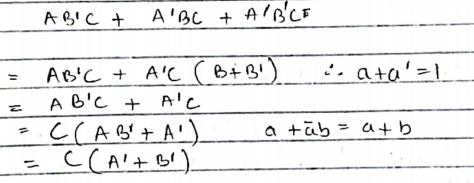 AB'C + A'BC + A'B'C
= AB'C + A'C (B+B') ∴ a+a'=1
= AB'C + A'C
= C(AB'+A') a+āb = a+b
= C(A'+B')